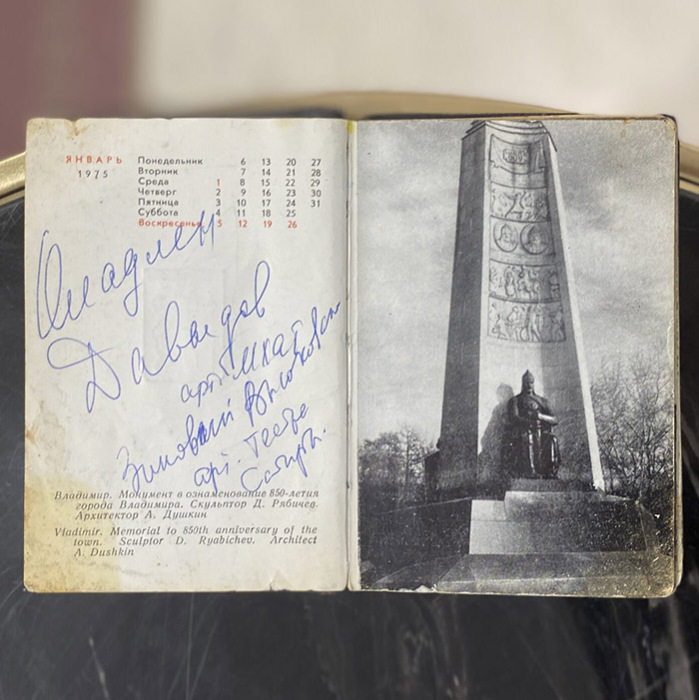 ЯНВАРЬ
1975
Понедельник 6 13 20 27
Вторник 7 14 21 28
Среда 1 8 15 22 29
Четверг 2 9 16 23 30
Пятница 3 10 17 24 31
Суббота 4 11 18 25
Воскресенье 5 12 19 26
Владлен
Давыдов
арт. МХАТ
Зиновий Высоковский
арт. Театра
Сатиры.
Владимир. Монумент в ознаменование 850-летия
города Владимира. Скульптор Д. Рябичев.
Архитектор А. Душкин
Vladimir. Memorial to 850th anniversary of the
town. Sculptor D. Ryabichev. Architect
A. Dushkin